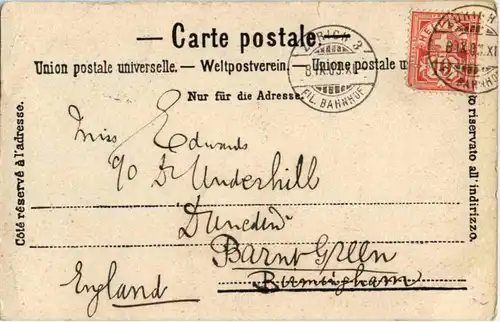 Carte postale
Union postale universelle. — Weltpostverein. — Unione postale u
Nur für die Adresse.
Côté réservé à l'adresse.
to riservato all'indirizzo.
ZÜRICH 3
8.IX.03.XI
FIL. BAHNHOF
HELVETIA
10
8.IX.03.XI
BAHNHO
Miss Edwards
c/o Dr Underhill
Dunedin
Barnt Green
Birmingham
England